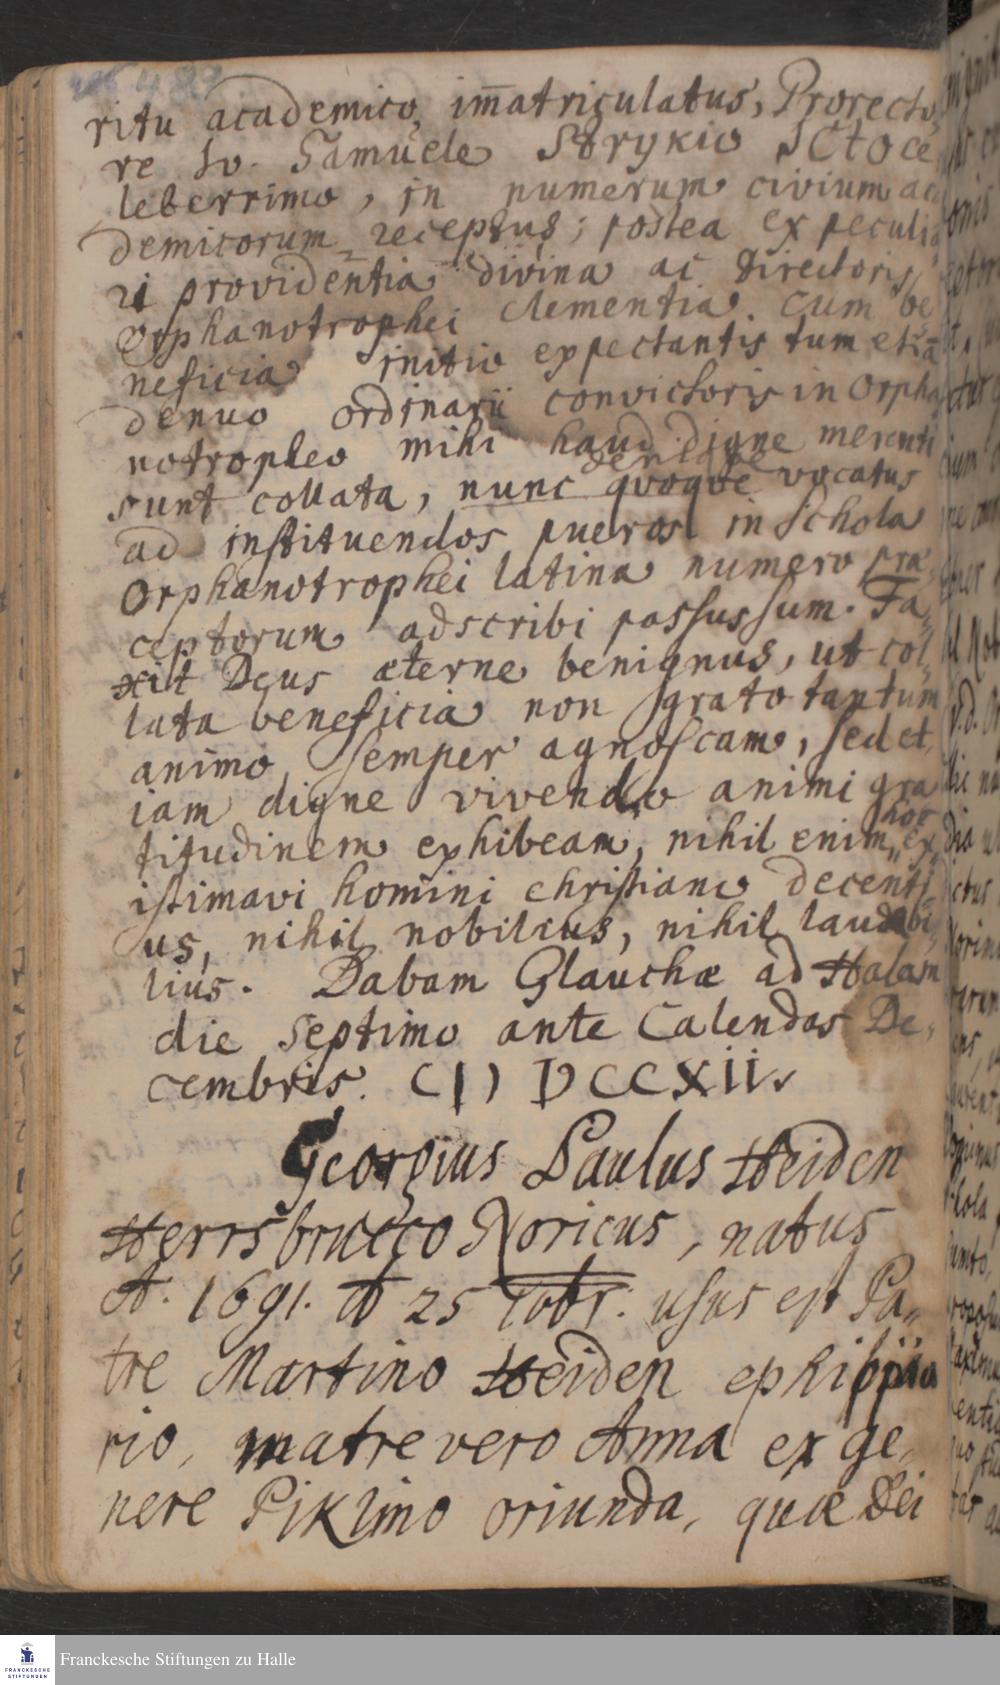 ritu academico, im̄atriculatus, Prorecto,
re Samuele Strykio JCto ce
leberrimo, in numerum civium aca
demicorum receptus; postea ex peculia
ri providentia divina ac Directoris
Orphanotrophei clementia. cum be
neficia initio expectantis tum etiā
denuo ordinarii convictoris in Orpha
notropheo mihi haud digne merenti
sunt collata, nunc quoque denique vocatus
ad instituendos pueros in Schola
Orphanotrophei latina numero præ,
ceptorum adscribi passus sum. Fa,
xit Deus æterne benignus, ut col,
lata beneficia non grato tantum
animo semper agnoscam, sed et,
iam digne vivendo animi gra
titudinem exhibeam, nihil enim hoc ex,
istimavi homini christiano decenti,
us, nihil nobilius, nihil laudabi,
lius. Dabam Glauchæ ad Halam
die septimo ante Calendas De,
cembris. CIↃ DCCXII.
Georgius Paulus Heiden
Herrsbrucco Noricus, natus
A. 1691. d 25 10br. usus est Pa,,
tre Martino Heiden ephippia
rio, matre vero Anna ex ge,
nere Piklino oriunda, quæ Dei
Franckesche Stiftungen zu Halle
FRANCKESCHE
STIFTUNGEN